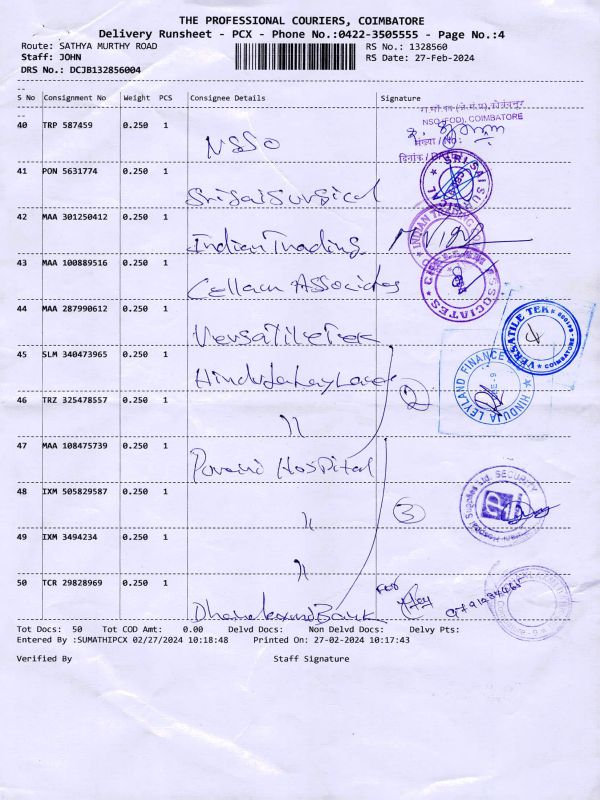 THE PROFESSIONAL COURIERS, COIMBATORE
Delivery Runsheet - PCX - Phone No.:0422-3505555 - Page No.:4
Route: SATHYA MURTHY ROAD RS No.: 1328560
Staff: JOHN RS Date: 27-Feb-2024
DRS No.: DCJB132856004
S No Consignment No Weight PCS Consignee Details Signature
40 TRP 587459 0.250 1 NSSO
NSO (FOD), COIMBATORE
41 PON 5631774 0.250 1 Sri Sai Surgical
SRI SAI
42 MAA 301250412 0.250 1 Indian Trading
INDIAN TRADING
43 MAA 100889516 0.250 1 Associates
ASSOCIATES
44 MAA 287990612 0.250 1 Versatile Tek
VERSATILE TEK COIMBATORE
45 SLM 340473965 0.250 1 Hinduja Leyland
HINDUJA LEYLAND FINANCE
46 TRZ 325478557 0.250 1 "
2
47 MAA 108475739 0.250 1 Hospital
48 IXM 505829587 0.250 1 "
3
SECURITY
49 IXM 3494234 0.250 1 "
50 TCR 29828969 0.250 1 Bank
For
Tot Docs: 50 Tot COD Amt: 0.00 Delvd Docs: Non Delvd Docs: Delvy Pts:
Entered By :SUMATHIPCX 02/27/2024 10:18:48 Printed On: 27-02-2024 10:17:43
Verified By Staff Signature